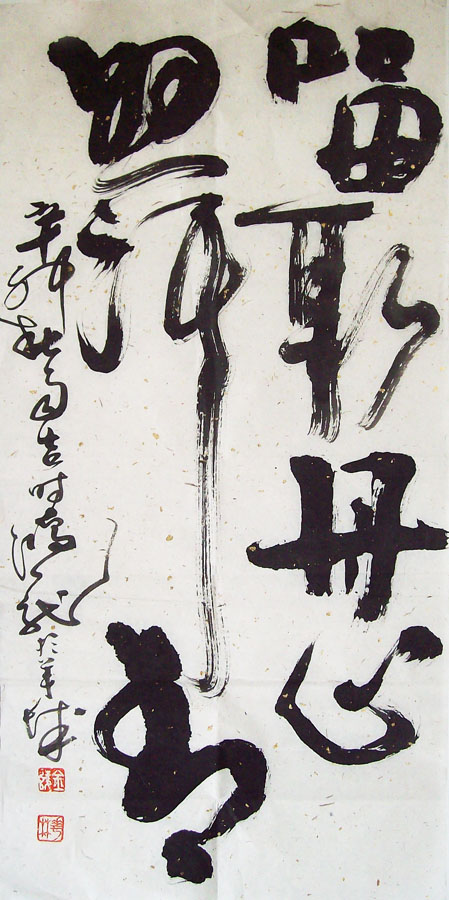 留取丹心
照汗青
辛卯秋吉时鸿於羊城